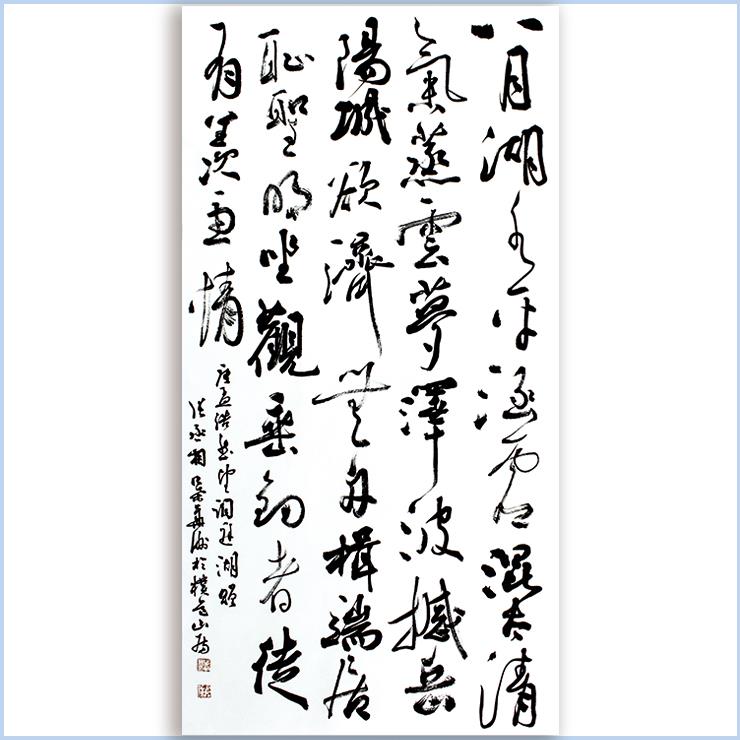 八月湖水平涵虛混太清
氣蒸雲夢澤波撼岳
陽城欲濟無舟楫端居
恥聖明坐觀垂釣者徒
有羨魚情
唐孟浩然望洞庭湖贈
張丞相